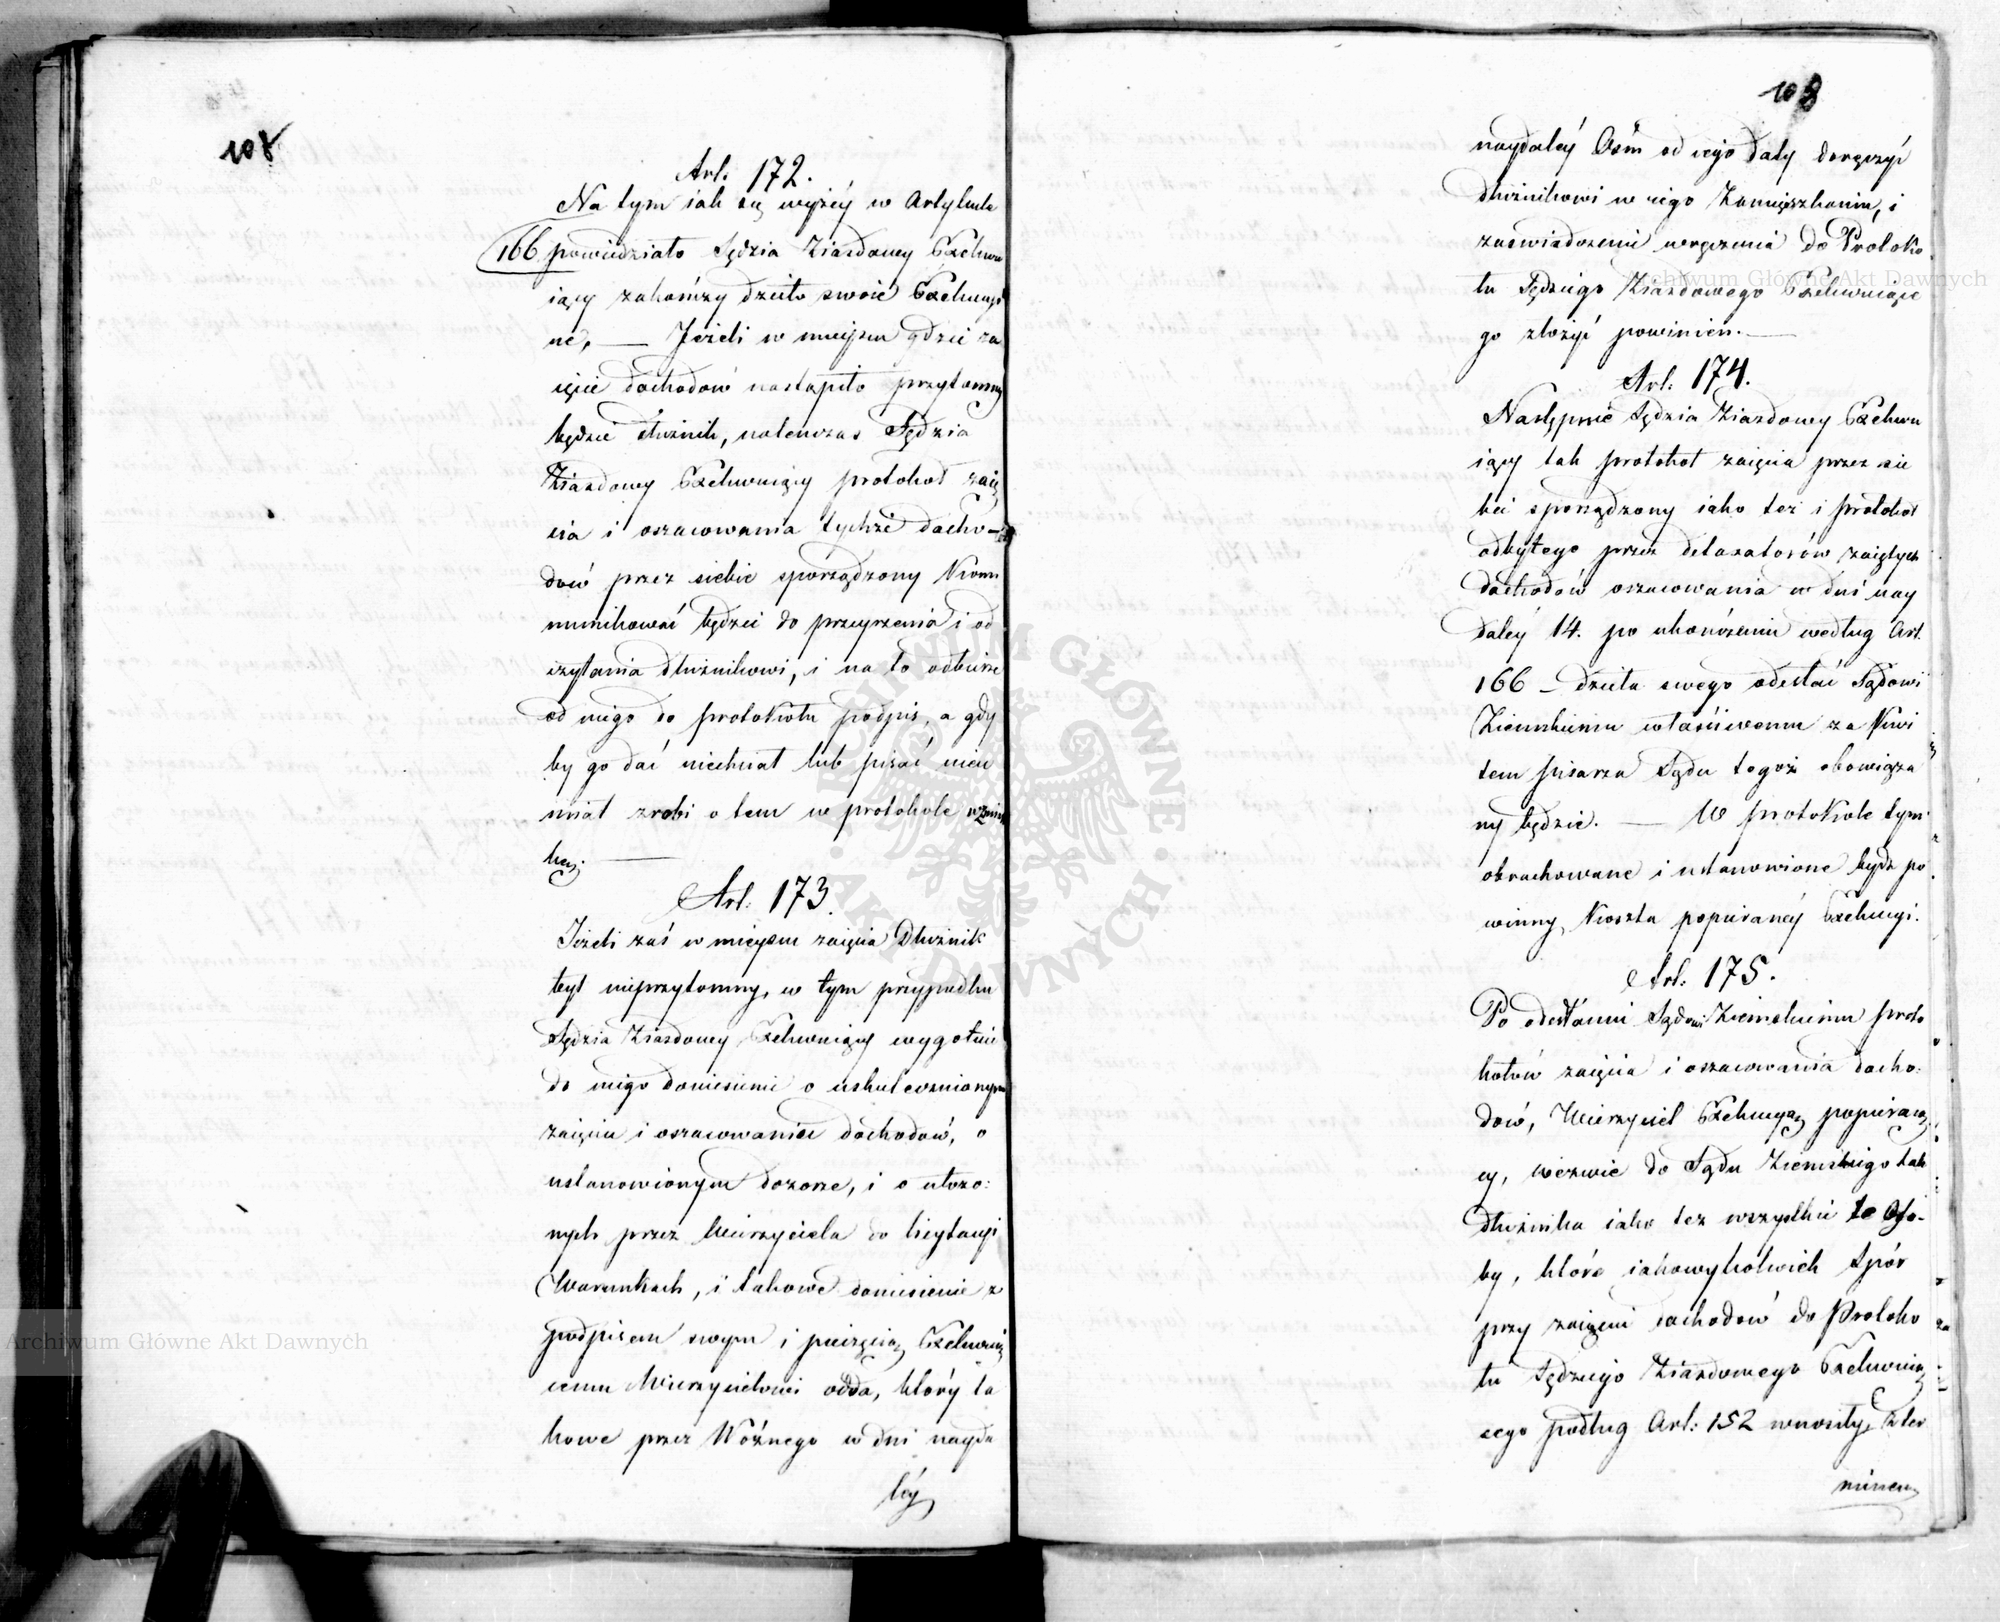 108
Art: 172.
Na tym iak się wyżéy w Artykule
166 powiedziało Sędzia Ziazdowy Exekwu
iący zakończy dzieło swoie Exekucyi
ne, — Jeżeli w mieyscu gdzie za
ięcie dochodów nastąpiło przytomny
będzie dłużnik, natenczas Sędzia
Ziazdowy Exekwuiący protokoł zaię
cia i oszacowania tychże docho-
dów przez siebie sporządzony Kom
munikować będzie do przeyrzenia i od
czytania dłużnikowi, i na to odbierze
od niego do protokółu podpis, a gdy
by go dać niechciał lub pisać nieu
miał zrobi o tem w protokole wzmian
kę. —
Art: 173.
Jeżeli zaś w mieyscu zaięcia Dłużnik
był nieprzytomny, w tym przypadku
Sędzia Ziazdowy Exekwuiący wygotuie
do niego doniesienie o uskutecznionym
zaięciu i oszacowaniu dochodów, o
ustanowionym dozorze, i o ułożo:
nych przez Wierzyciela do licytacyi
Warunkach, i takowe doniesienie z
podpisem swym i pieczęcią Exekwuią
cemu Wierzycielowi odda, który ta
kowe przez Woźnego w dni nayda
léy
108
naydaléy Ośm od iego daty doręczyć
dłużnikowi w iego Zamięszkaniu, i
zaświadczenie wręczenia do Protoko
łu Sędziego Ziazdowego Exekwuiące
go złożyć powinien. —
Art: 174.
Następnie Sędzia Ziazdowy Exekwu
iący tak protokoł zaięcia przez sie
bie sporządzony iako też i protokoł
odbytego przez detaxatorów zaiętych
dochodów oszacowania w dni nay
daléy 14. po ukończeniu według Art.
166 – dzieła swego odesłać Sądowi
Ziemskiemu właściwemu za Kwi
tem pisarza Sądu tegoż obowiąza
ny będzie. — W protokole tym
obrachowane i ustanowione bydź po
winny Koszta popieranéy Exekucyi.
Art: 175.
Po odesłaniu Sądowi Ziemskiemu proto
kołów zaięcia i oszacowania docho:
dów, Wierzyciel Exekucyą popieraią
cy, wezwie do Sądu Ziemskiego tak
dłużnika iako też wszystkie te Oso-
by, które iakowykolwiek Spór
przy zaięciu dochodów do Protoko
łu Sędziego Ziazdowego Exekwuią
cego podług Art: 152 wniosły, z ter
minem
Archiwum Główne Akt Dawnych
Archiwum Główne Akt Dawnych
ARCHIWUM GŁÓWNE · AKT DAWNYCH ·